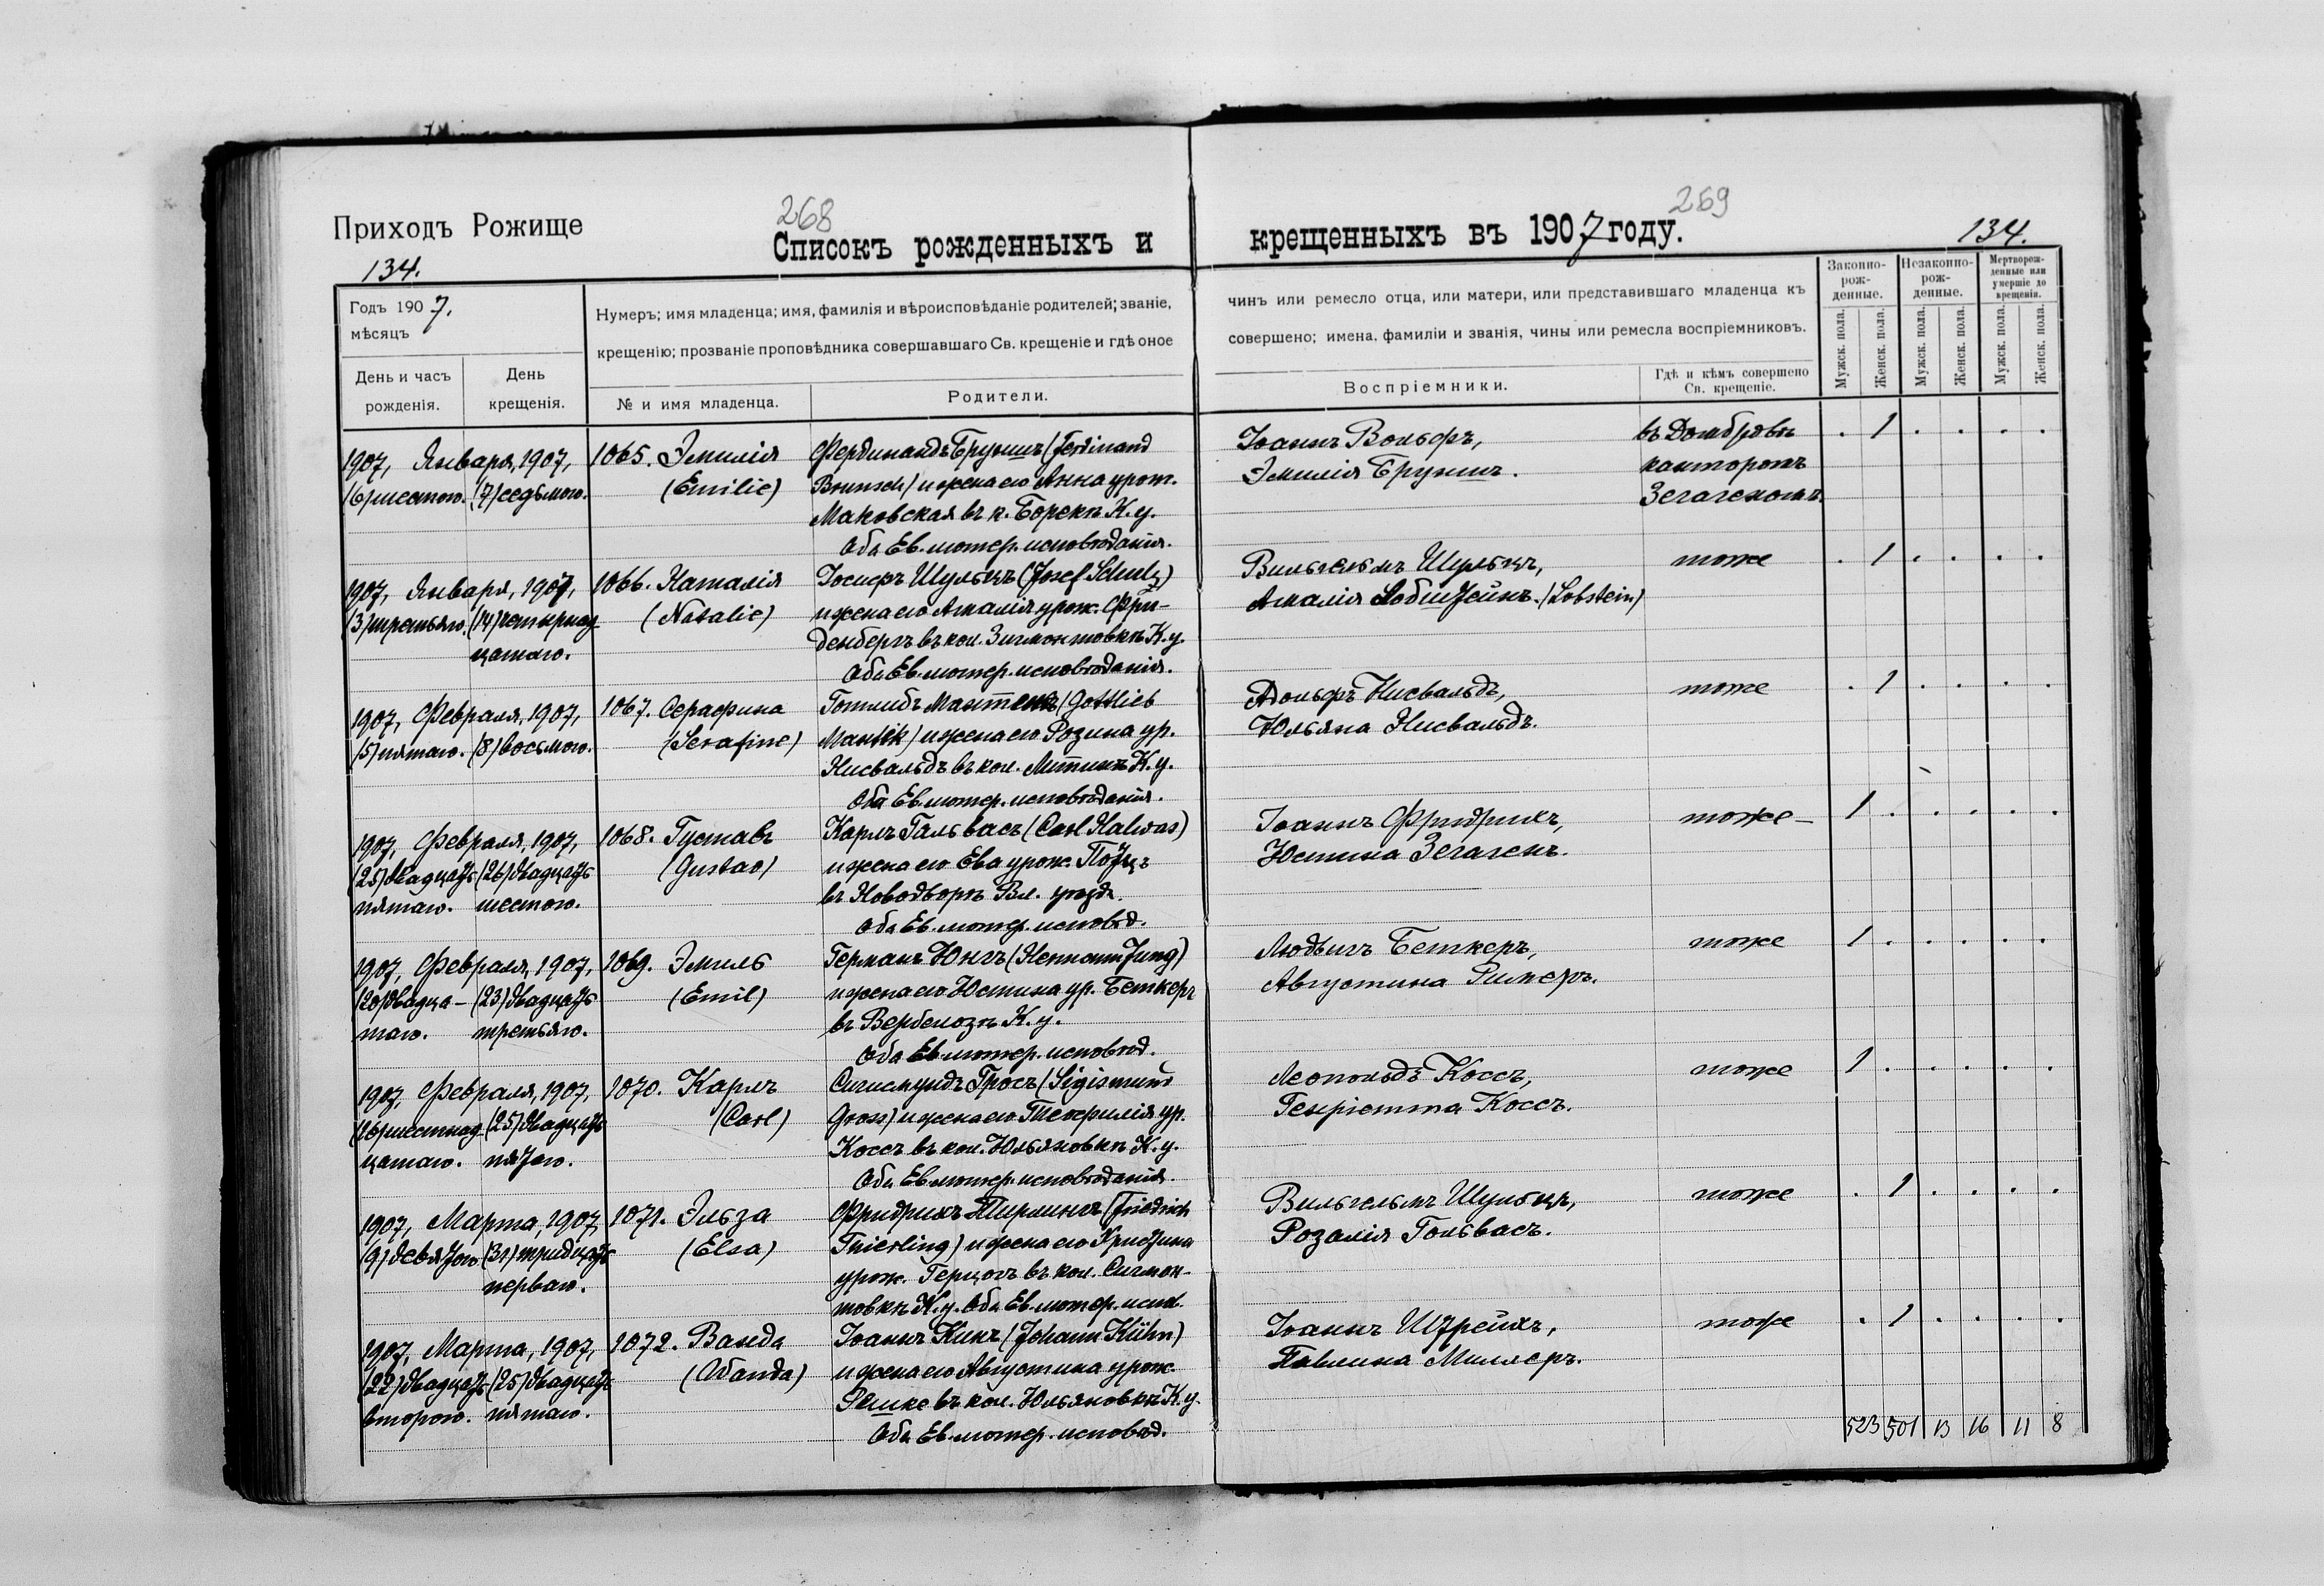 268
269
Приходъ Рожище
Списокъ рожденныхъ и крещенныхъ въ 1907 году.
134.
134.
Годъ 1907.
мѣсяцъ
Нумеръ; имя младенца; имя, фамилія и вѣроисповѣданіе родителей; званіе,
крещенію; прозваніе проповѣдника совершавшаго Св. крещеніе и гдѣ оное
чинъ или ремесло отца, или матери, или представившаго младенца къ
совершено; имена, фамиліи и званія, чины или ремесла воспріемниковъ.
Законно-
рож-
денные.
Незаконно-
рож-
денные.
Мертворож-
денные или
умершіе до
крещенія.
День и часъ
рожденія.
День
крещенія.
№ и имя младенца.
Родители.
Воспріемники.
Гдѣ и кѣмъ совершено
Св. крещеніе.
Мужск. пола.
Женск. пола.
Мужск. пола.
Женск. пола.
Мужск. пола.
Женск. пола.
1907, Января, 1907,
(6) шестого. (7) седьмого.
1065. Эмилія
(Emilie)
Фердинандъ Бруншъ (Ferdinand
Brunsch) и жена его Анна урож.
Маковская въ к. Борекъ К. у.
Оба Ев. лютер. исповѣданія.
Іоаннъ Вольфъ,
Эмилія Бруншъ.
въ Домбровѣ
канторомъ
Зегагеномъ.
. 1 . . . .
1907, Января, 1907,
(3) третьяго. (14) четырнад
цатаго.
1066. Наталія
(Natalie)
Іосифъ Шульцъ (Josef Schulz)
и жена его Амалія урож. Фри-
денбергъ въ кол. Зигмонтовкѣ К. у.
Оба Ев. лютер. исповѣданія.
Вильгельмъ Шульцъ,
Амалія Лобштейнъ. (Lobstein)
тоже
. 1 . . . .
1907, Февраля, 1907,
(5) пятаго. (8) восьмого.
1067. Серафина
(Serafine)
Готлибъ Мантекъ (Gottlieb
Mantek) и жена его Розина ур.
Нисвальдъ въ кол. К. у.
Оба Ев. лютер. исповѣданія.
Адольфъ Нисвальдъ,
Юльяна Нисвальдъ.
тоже
. 1 . . . .
1907, Февраля, 1907,
(25) двадцать (26) двадцать
пятаго. шестого.
1068. Густавъ
(Gustav)
Карлъ Гальвасъ (Carl Halwas)
и жена его Ева урож.
въ Новодворѣ Вл. уѣзда.
Оба Ев. лютер. исповѣд.
Іоаннъ Фридрихъ,
Юстина Зегагенъ.
тоже –
1 . . . . .
1907, Февраля, 1907,
(20) двадца- (23) двадцать
таго. третьяго.
1069. Эмиль
(Emil)
Германъ Юнгъ (Hermann Jung)
и жена его Юстина ур. Беткеръ
въ Вербелозѣ К. у.
Оба Ев. лютер. исповѣд.
Людвигъ Беткеръ,
Августина Римеръ.
тоже
1 . . . . .
1907, Февраля, 1907,
(16) шестнад (25) двадцать
цатаго. пятого.
1070. Карлъ
(Carl)
Сигисмундъ Гросъ (Sigismund
Gross) и жена его Теофилія ур.
Коссъ въ кол. Юльяновкѣ К. у.
Оба Ев. лютер. исповѣданія.
Леопольдъ Коссъ,
Генріетта Коссъ.
тоже
1 . . . . .
1907, Марта, 1907,
(9) девятого (31) тридцать
перваго.
1071. Эльза
(Elsa)
Фридрихъ Тирлингъ (Friedrich
Thierling) и жена его Кристина
урож. Герцогъ въ кол. Сигмон-
товкѣ К. у. Оба Ев. лютер. испов.
Вильгельмъ Шульцъ,
Розалія Гольвасъ.
тоже
. 1 . . . .
1907, Марта, 1907,
(22) двадцать (25) двадцать
второго. пятаго.
1072. Ванда
(Wanda)
Іоаннъ Кинъ (Johann Kühn)
и жена его Августина урож.
Решке въ кол. Юльяновкѣ К. у.
Оба Ев. лютер. исповѣд.
Іоаннъ Штрейхъ,
Павлина Миллеръ.
тоже
. 1 . . . .
523 501 13 16 11 8